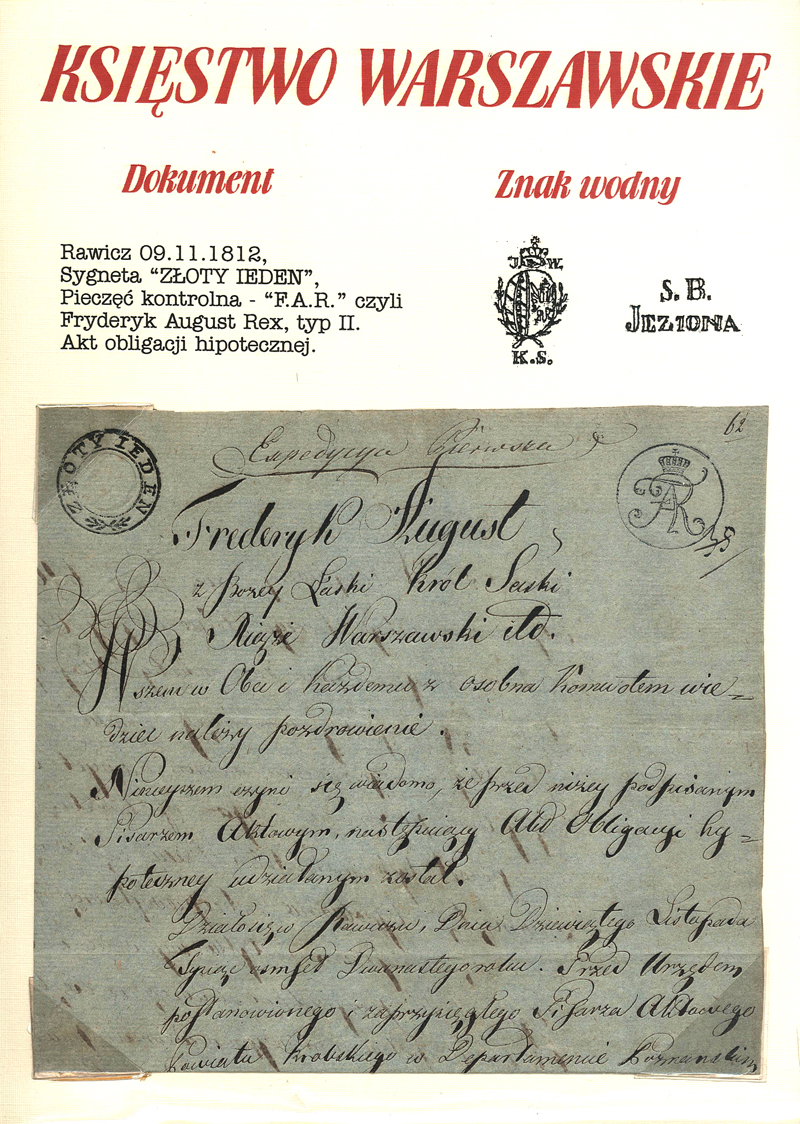 KSIĘSTWO WARSZAWSKIE
Dokument
Znak wodny
Rawicz 09.11.1812,
Sygneta “ZŁOTY IEDEN”,
Pieczęć kontrolna - “F.A.R.” czyli
Fryderyk August Rex, typ II.
Akt obligacji hipotecznej.
J. W.
K.S.
S. B.
JEZIONA
62
ZŁOTY IEDEN
Expedycya Pierwsza
FAR
Frederyk August
z Bozey Łaski Król Saski
Xiąże Warszawski etd.
Wszem w Obec i każdemu z osobna komu otem wie=
dziec należy pozdrowienie.
Ninieyszem czyni się wiadomo, że przed niżey podpisanym
Pisarzem Aktowym, następuiący Akt Obligacyi hy=
poteczney udziałanym został.
Działo się w Rawiczu, Dnia Dziewiątego Listopada
Tysiąc osmset Dwunastego roku. Przed Urzędem
postanowionego i zaprzysięgłego Pisarza Aktowego
Powiatu Krobskiego w Departamencie Poznanskim